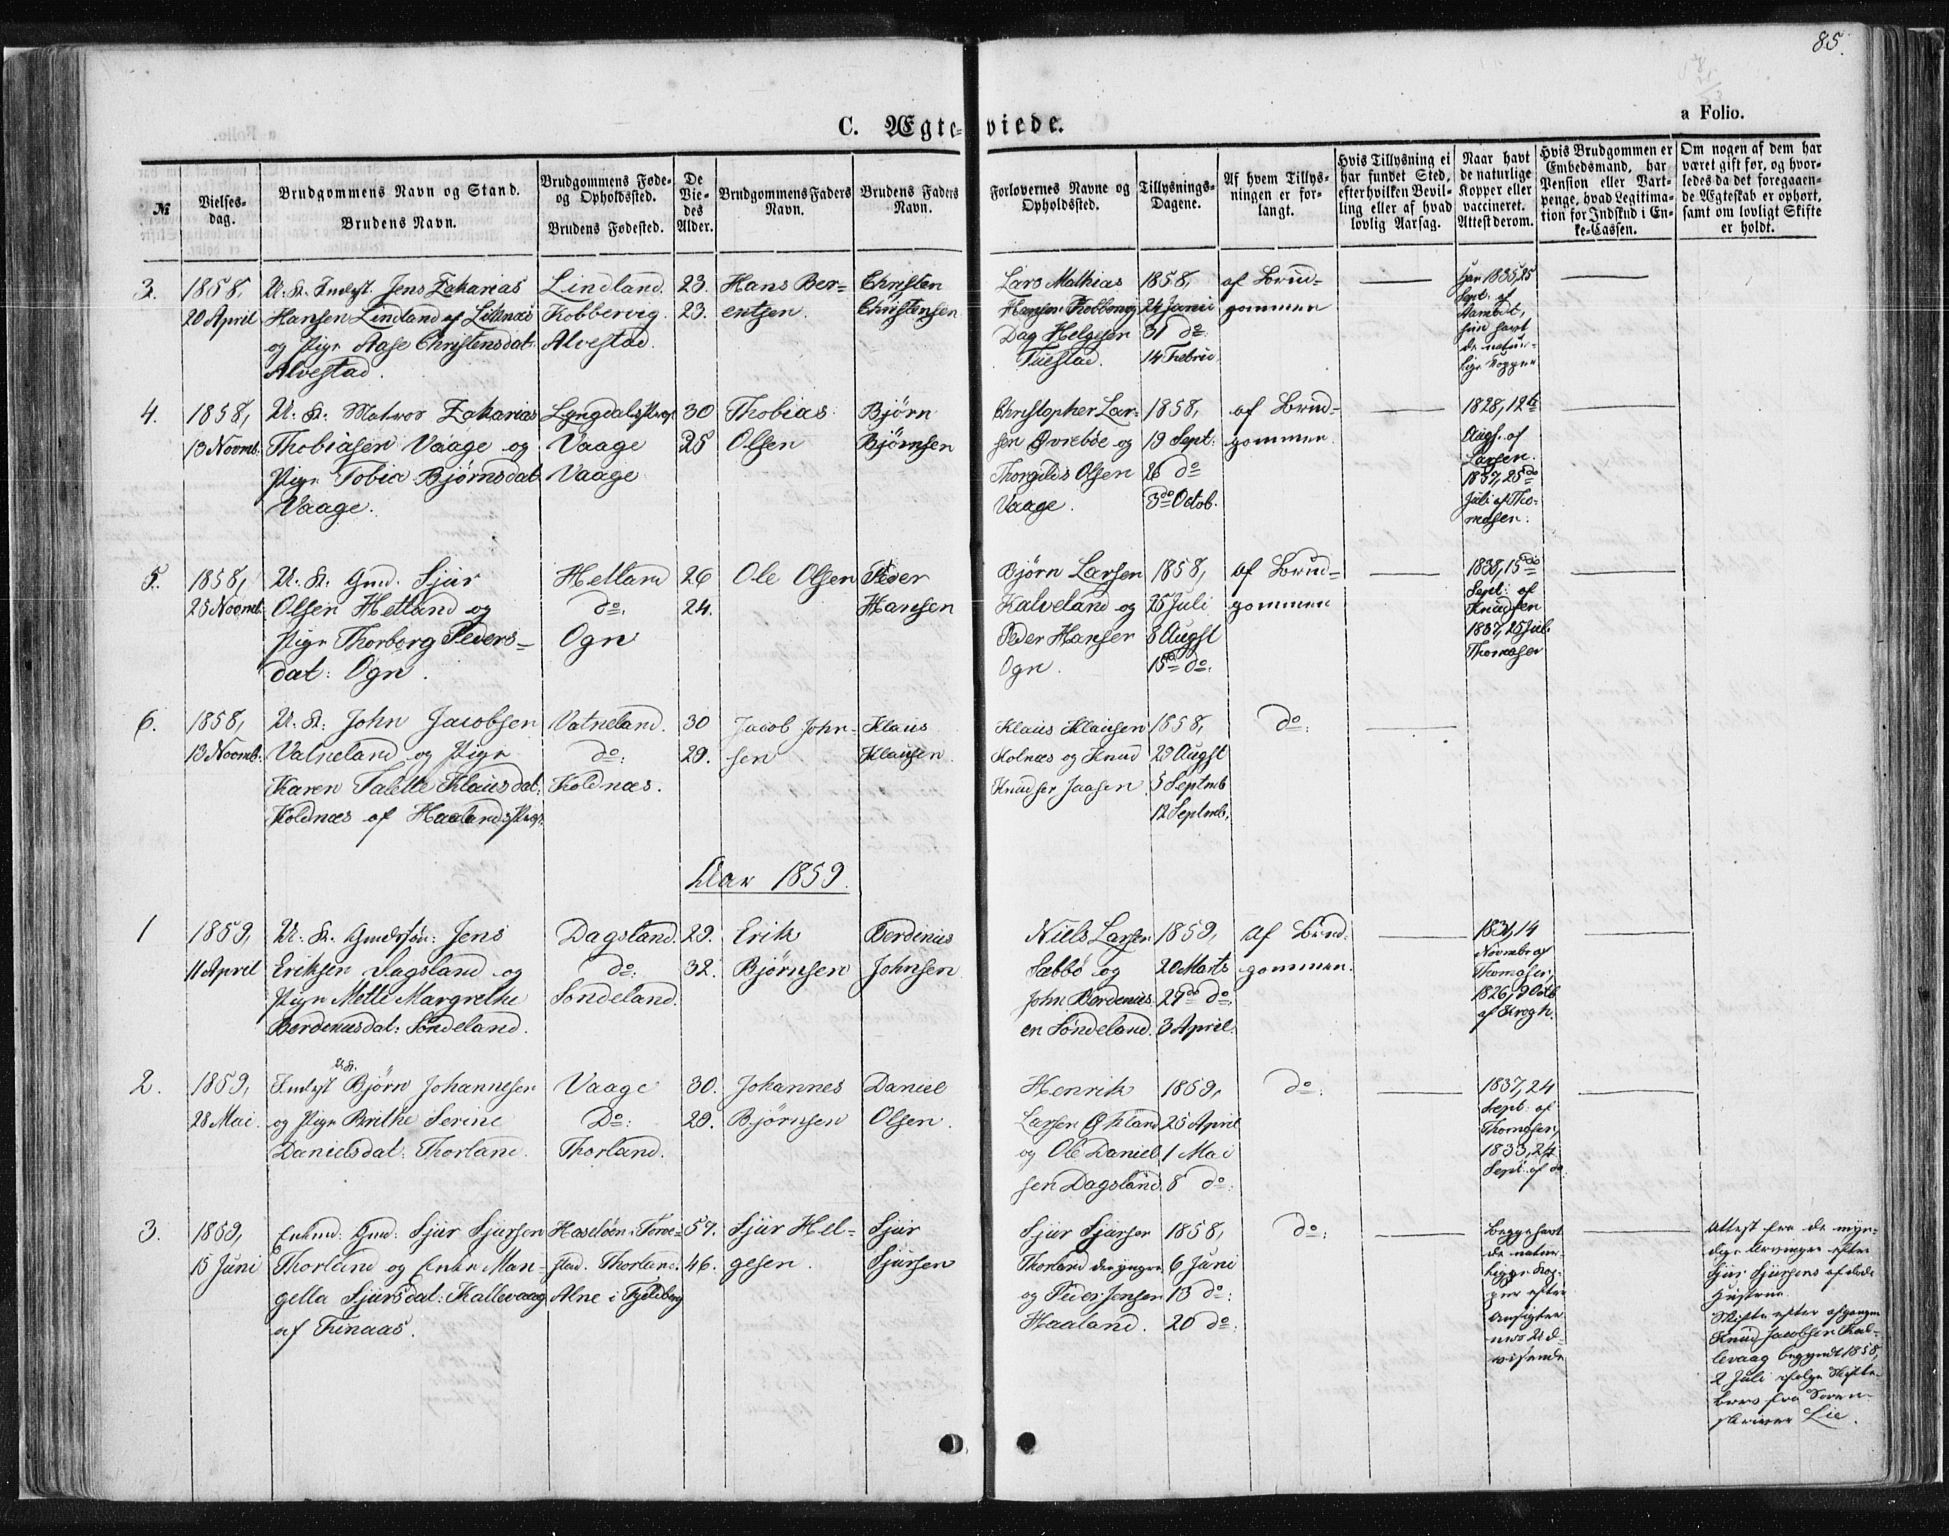 85.
a Folio.
C. Ægteviede.
№
Vielses-
dag.
Brudgommens Navn og Stand.
Brudens Navn.
Brudgommens Føde-
og Opholdssted.
Brudens Fødested.
De
Vie-
des
Alder.
Brudgommens Faders
Navn.
Brudens Faders
Navn.
Forlovernes Navne og
Opholdssted.
Tillysnings-
Dagene.
Af hvem Tillys-
ningen er for-
langt.
Hvis Tillysning ei
har fundet Sted,
efter hvilken Bevil-
ling eller af hvad
lovlig Aarsag.
Naar havt
de naturlige
Kopper eller
vaccineret.
Attest derom.
Hvis Brudgommen er
Embedsmand, har
Pension eller Vart-
penge, hvad Legitima-
tion for Indskud i En-
ke-Cassen.
Om nogen af dem har
været gift før, og hvor-
ledes da det foregaaen-
de Ægteskab er ophørt,
samt om lovligt Skifte
er holdt.
3.
1858,
20 April
U. K. Indst. Jens Zakarias
Hansen Lindland af
og Pige Aase Christensdat:
Alvestad.
Lindland.
Kobbervig.
Alvestad.
23.
23.
Hans Ber-
entsen.
Christen
Christensen
Lars Mathias
Hansen Kobbervig
Dag Helgesen
Tuestad.
1858,
24 Januar
31 do:
14 Februar
af Brud-
gommen
han 1835, 25
Sept. af
hun havt
de natur-
lige Kopper
4.
1858,
13 Novmb.
U. K. Matros Zakarias
Thobiasen Vaage og
Pige Tobia Bjørnsdat:
Vaage.
Lyngdals Præg
Vaage
Vaage
30
25
Thobias
Olsen
Bjørn
Bjørnsen
Christopher Lar-
sen Øvrebøe og
Thorgils Olsen
Vaage.
1858,
19 Sept:
26 do
3do Octob.
af Brud-
gommen
1828, 12te
Augs. af
Larsen.
1837, 25de
Juli af Tho-
masen.
5.
1858,
25 Novmb.
U. K. Gmd. Sjur
Olsen Hetland og
Pige Thorberg Peders-
dat: Ogn.
Hetland
do:
Ogn
26
24.
Ole Olsen
Peder
Hansen
Bjørn Larsen
Kalveland og
Peder Hansen
Ogn.
1858,
25 Juli
8 Augst
15de do:
af Brud-
gommen
1838, 15de
Sept: af
Knudsen
1837, 25 Juli
Thomasen
6.
1858,
13 Novmb.
U. K. John Jacobsen
Vatneland og Pige
Karen Talette Klausdat:
Koldnæs af Haalands Præg.
Vatneland.
do:
Koldnæs.
30
29.
Jacob John-
sen
Klaus
Klausen
Klaus Klausen
Kolnæs og Knud
Knudsen Jaasen
1858,
29 Augst
5 Septmb
12 Septmb.
do:
Aar 1859.
1
1859,
11 April
U. K. Gmdssøn: Jens
Eriksen Dagsland og
Pige Mette Margrethe
Berdenusdat: Søndeland.
Dagsland.
do:
Sondeland.
29.
32.
Erik
Bjørnsen
Berdenius
Johnsen
Niels Larsen
Sæbbø og
John Berdenius
en Søndeland.
1859,
20 Marts
27de do:
3 April.
af Brud-
gommen.
1831, 14
Novmbr af
Thomasen,
1826, 9 Octb
af Krogh.
2.
1859,
28 Mai.
U. K.
Indst Bjørn Johannesen
og Pige Brithe Serine
Danielsdat: Thorland.
Vaage
Do:
Thorland.
30.
29.
Johannes
Bjørnsen
Daniel
Olsen.
Henrik
Larsen Økland
og Ole Daniel
sen Dagsland.
1859,
25 April
1 Mai
8 do:
do:
1837, 24
Sept: af
Thomasen,
1833, 24
Sept: af do
3.
1859,
15 Juni
Enkmd: Gmd: Sjur Sjursen
Thorland og Enke Man-
gella Sjursdat: Kallevaag
af Finaas.
Haseløen i Torve-
stad. Thorland.
Alne i Fjeldberg
57.
46.
Sjur Hel-
gesen.
Sjur
Sjursen
Sjur Sjursen
Thorland den yngre
og Peder Jensen
Haaland.
1858,
6 Juni
13 do:
20 do:
do:
Begge havt
de natur-
lige Kop-
per efter
Ansigter
nes Ud-
visende
Attest fra de myn-
dige Arvinger efter
Sjur Sjursens afdøde
Hustrue.
Skifte efter afgangne
Knud Jacobsen Kal-
levaag begyndt 1858,
2 Juli ifølge Skifte-
brev fra Soren-
skriver Lie.